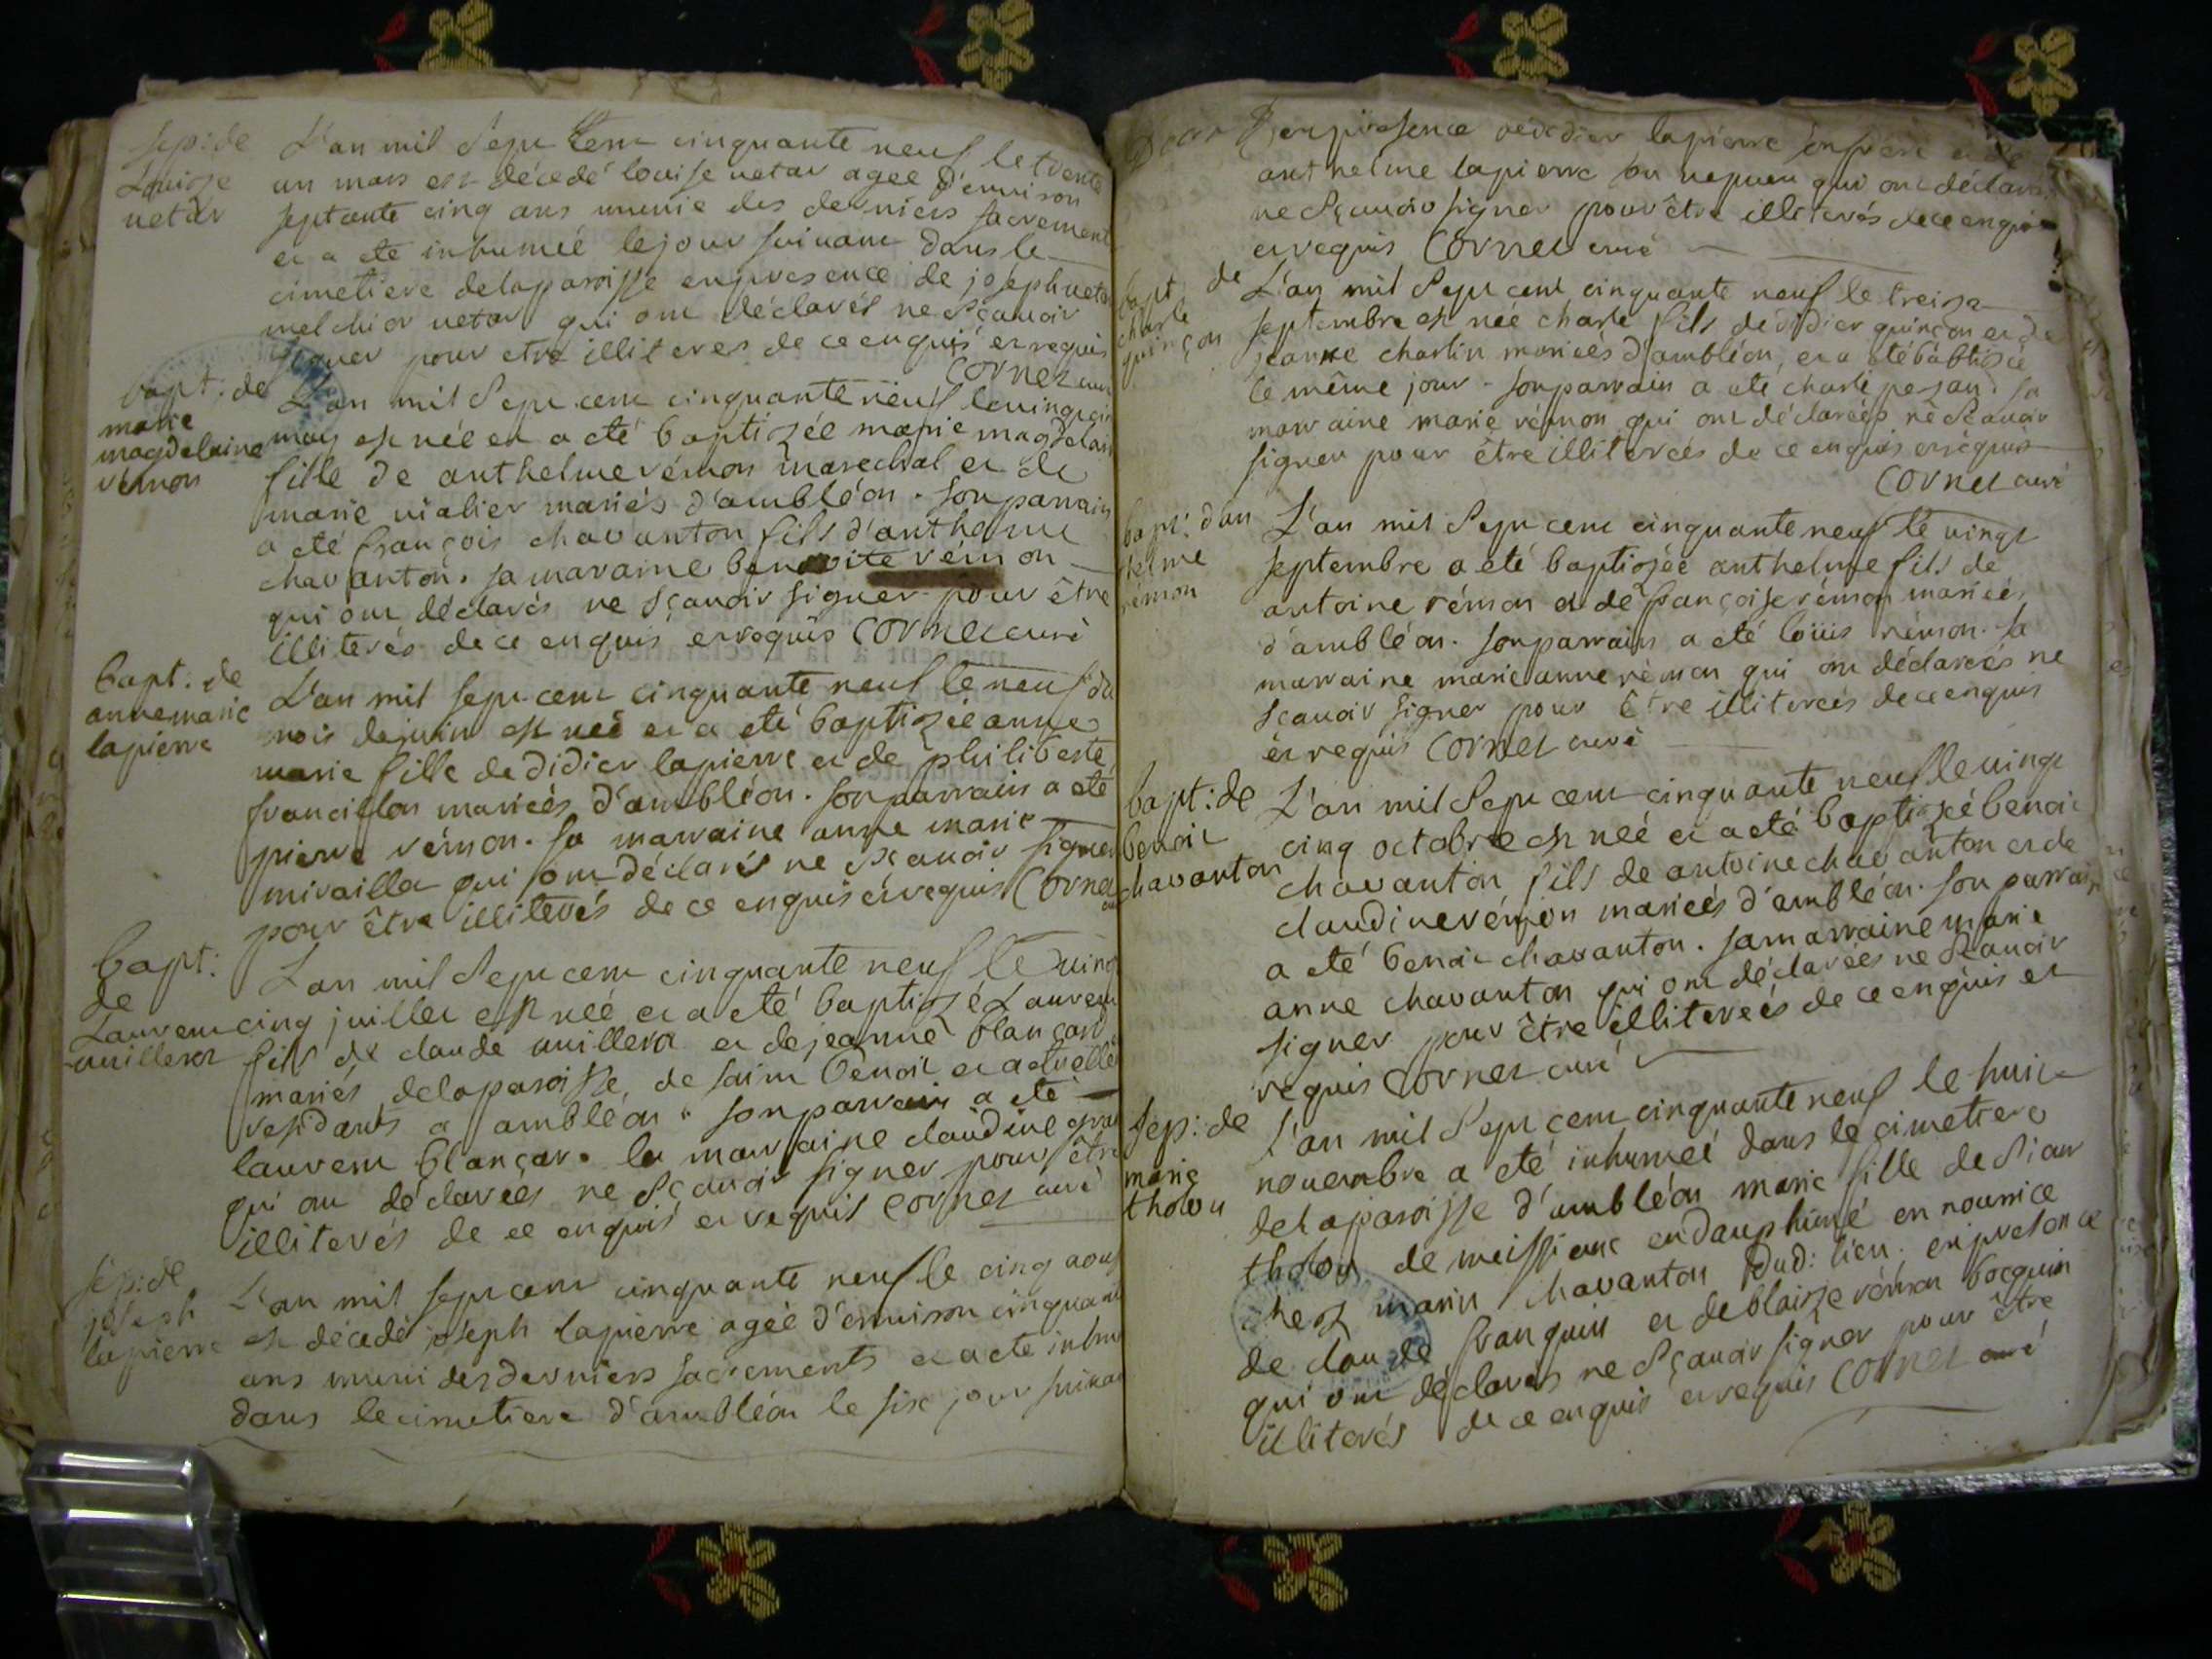 sep: de
Louise
vetar
L'an mil Sept Cent cinquante neuf le trente
un mars est décedé louise vetar agee d'environ
septante cinq ans munie des derniers sacrement
et a ete inhumeé le jour suivant dans le
cimetiere delaparoisse enpresence de joseph veta
melchior vetar qui ont déclarés ne sçauoir
signer pour etre illiteres de ce enquis et requis
Cornet curé
bapt: de
marie
magdelaine
rémon
L'an mil Sept cent cinquante neuf le
may est néé et a eté baptizéé marie magdelain
fille de anthelme rémon marechal et de
marie vialier mariés d'ambléon. son parrain
a eté françois chavanton fils d'anthelme
chavanton. sa maraine benoite rémon
qui ont déclarés ne sçauoir signer pour être
illiterés de ce enquis et requis Cornet curé
bapt: de
anne marie
lapierre
L'an mil sept cent cinquante neuf le neuf du
mois dejuin est née et a eté baptizéé anne
marie fille de didier lapierre et de philiberte
francillon mariéés d'ambléon. son parrain a eté
pierre rémon. sa marraine anne marie
mirailler qui ont déclarés ne sçauoir signer
pour être illiterés de ce enquis et requis Cornet
bapt:
de
Laurent
uuillerot
L'an mil Sept cent cinquante neuf le vingt
cinq juillet est néé et a eté baptizé Laurent
fils de claude uuillerot et de jeanne blançard
mariés delaparoisse de saint benoit et actuelle
residants a ambléon. son parrain a eté
laurent blançar. la marraine claudine
qui ont déclareés ne sçauoir signer pour être
illiterés de ce enquis et requis Cornet curé
sep: de
joseph
lapierre
L'an mil sept cent cinquante neuf le cinq aout
est décedé joseph lapierre ageé d'environ cinquante
ans muni des derniers sacrements et a eté inhu
dans le cimetiere d'ambléon le six jour suivan
enpresence de didier lapierre son frere et de
anthelme lapierre son nepveu qui ont déclarés
ne sçauoir signer pour être illiterés de ce enquis
et requis Cornet curé
bapt de
charle
quinçon
L'an mil Sept cent cinquante neuf le treize
septembre est néé charle fils de didier quinçon et de
jeanne charlin mariéés d'ambléon, et a eté babtizée
le même jour. son parrain a ete charle pezand. sa
marraine marie rémon qui ont déclareés ne sçauoir
signer pour être illitereés de ce enquis et requis
Cornet curé
bapt: d'an
thelme
rémon
L'an mil Sept cent cinquante neuf le vingt
septembre a eté baptizéé anthelme fils de
antoine rémon et de françoise rémon mariéés
d'ambléon. son parrain a eté loüis rémon. sa
marraine marie anne rémon qui ont déclareés ne
sçauoir signer pour être illitereés de ce enquis
et requis Cornet curé
bapt: de
benoit
chavanton
L'an mil Sept cent cinquante neuf le vingt
cinq octobre est néé et a eté baptizé benoit
chavanton fils de antoine chavanton et de
claudine rémon mariéés d'ambléon. son parrain
a eté benoit chavanton. sa marraine marie
anne chavanton qui ont déclareés ne sçauoir
signer pour être illitereés de ce enquis et
requis Cornet curé
sep: de
marie
tholou
L'an mil Sept cent cinquante neuf le huit
nouembre a eté inhumeé dans le cimetiere
delaparoisse d'ambléon marie fille de Sieur
tholou de meissieux en dauphiné en nourrice
chez marin chavanton dud: lieu. enpresence
de claude franquin et de blaize rémon bocquin
qui ont déclarés ne sçauoir signer pour être
illiterés de ce enquis et requis Cornet curé